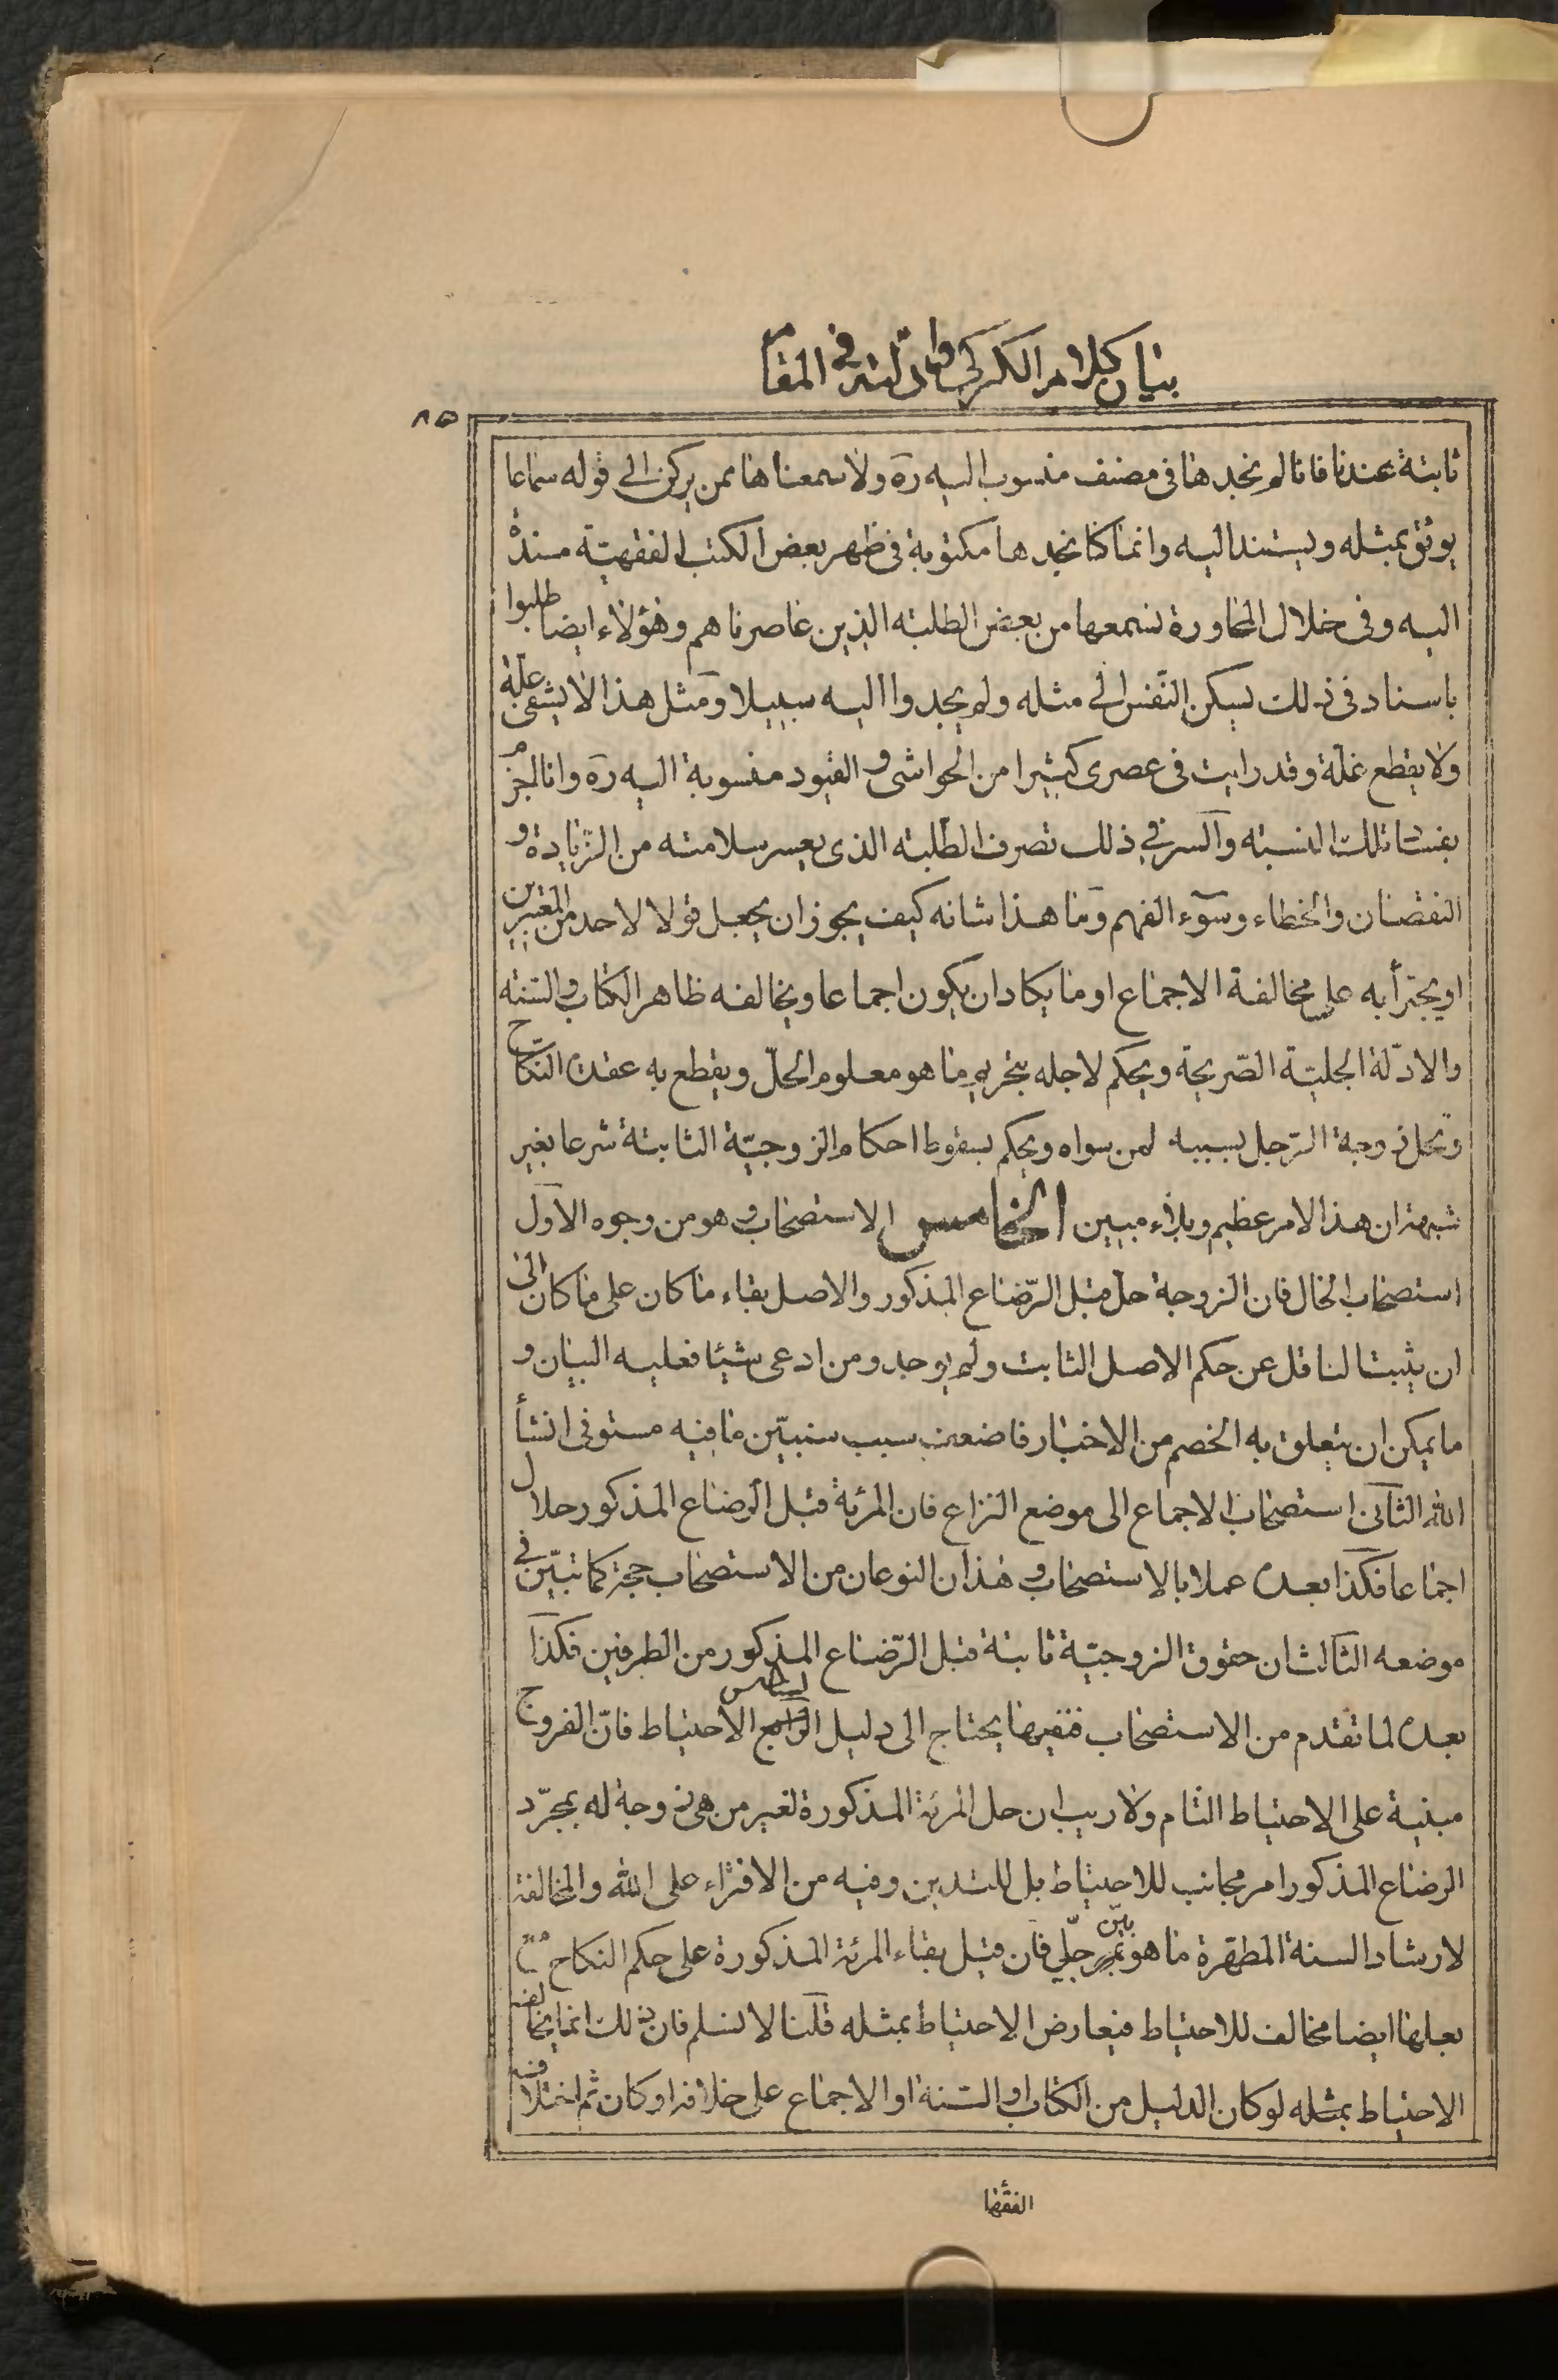 بيان كلام الكركى وادلته فى المقام
٨٥
ثابتة عندنا فانا لم نجدها فى مصنف منسوب اليه ره ولا سمعناها ممن يركن الى قوله سماعا
يوثق بمثله ويستند اليه وانما كنا نجدها مكتوبة فى ظهر بعض الكتب الفقهيّة مسندة
اليه وفى خلال المحاورة نسمعها من بعض الطلبة الذين عاصرناهم وهؤلاء ايضا طلبوا
باسناد فى ذلك يسكن النّفس الى مثله ولم يجدوا اليه سبيلا ومثل هذا لا يشفى علّة
ولا يقطع غلّة وقد رايت فى عصرى كثيرا من الحواشى و القيود منسوبة اليه ره وانا اجزم
بفساد تلك النسبة والسر فى ذلك تصرف الطّلبة الذى يعسر سلامته من الزّيادة و
النقصان والخطاء وسوء الفهم وما هذا شانه كيف يجوز ان يجعل قولا لاحد من المعتبرين
او يجترأ به على مخالفة الاجماع او ما يكاد ان يكون اجماعا ويخالفه ظاهر الكتاب والسّنة
والادلّة الجليّة الصّريحة ويحكم لاجله بتحريم ما هو معلوم الحلّ ويقطع به عقدة النكاح
وتحل زوجة الرّجل بسببه لمن سواه ويحكم بسقوط احكام الزوجيّة الثابتة شرعا بغير
شبهة ان هذا لامر عظيم وبلاء مبين الخامس الاستصحاب وهو من وجوه الاول
استصحاب الحال فان الزوجة حل قبل الرّضاع المذكور والاصل بقاء ما كان على ما كان الى
ان يثبت الناقل عن حكم الاصل الثابت ولم يوجد ومن ادعى شيئا فعليه البيان و
ما يمكن ان يتعلق به الخصم من الاخبار فاضعف سبب سنبيّن ما فيه مستوفى انشأ
الله الثانى استصحاب الاجماع الى موضع النزاع فان المرئة قبل الرضاع المذكور حلال
اجماعا فكذا بعده عملا بالاستصحاب وهذان النوعان من الاستصحاب حجة كما تبيّن فى
موضعه الثالث ان حقوق الزوجيّة ثابتة قبل الرّضاع المذكور من الطرفين فكذا
بعده لما تقدم من الاستصحاب فنفيها يحتاج الى دليل الرابع السادس الاحتياط فانّ الفروج
مبنية على الاحتياط التام ولا ريب ان حل المرئة المذكورة لغير من هى زوجة له بمجرّد
الرضاع المذكور امر مجانب للاحتياط بل للتدين وفيه من الافتراء على الله والمخالفة
لارشاد السنة المطهرة ما هو بيّن جلّى فان قيل بقاء المرئة المذكورة على حكم النكاح مع
بعلها ايضا مخالف للاحتياط فيعارض الاحتياط بمثله قلنا لا نسلم فان ذلك انما يخالفه
الاحتياط بمثله لو كان الدليل من الكتاب او السّنة او الاجماع على خلافه او كان ثم اختلاف
الفقها